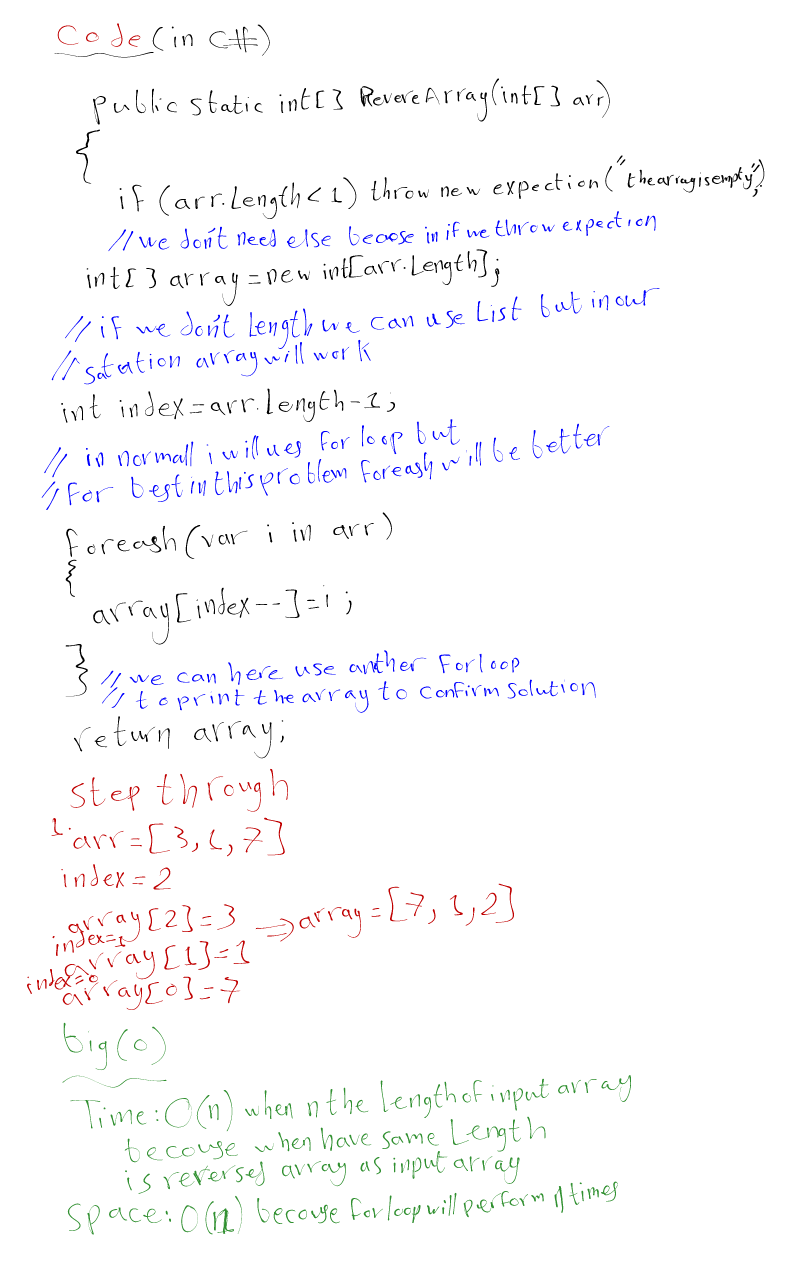 Code (in C#)
public static int[] RevereArray(int[] arr)
{
if (arr.Length < 1) throw new expection("the array is empty");
// we don't need else becaose in if we throw expection
int[] array = new int[arr.Length];
// if we don't Length we can use List but in our
// satation array will work
int index = arr.Length-1;
// in normall i will ues for loop but
// For best in this problem foreash will be better
foreash(var i in arr)
{
array[index--]=i;
}
// we can here use anther For loop
// to print the array to confirm solution
return array;
step through
1. arr=[3,1,7]
index=2
array[2]=3 ⇒ array=[7,1,2]
index=1
array[1]=1
index=0
array[0]=7
big(o)
Time: O(n) when n the Length of input array
becouse when have same Length
is reversed array as input array
Space: O(n) becouse for loop will perform n times